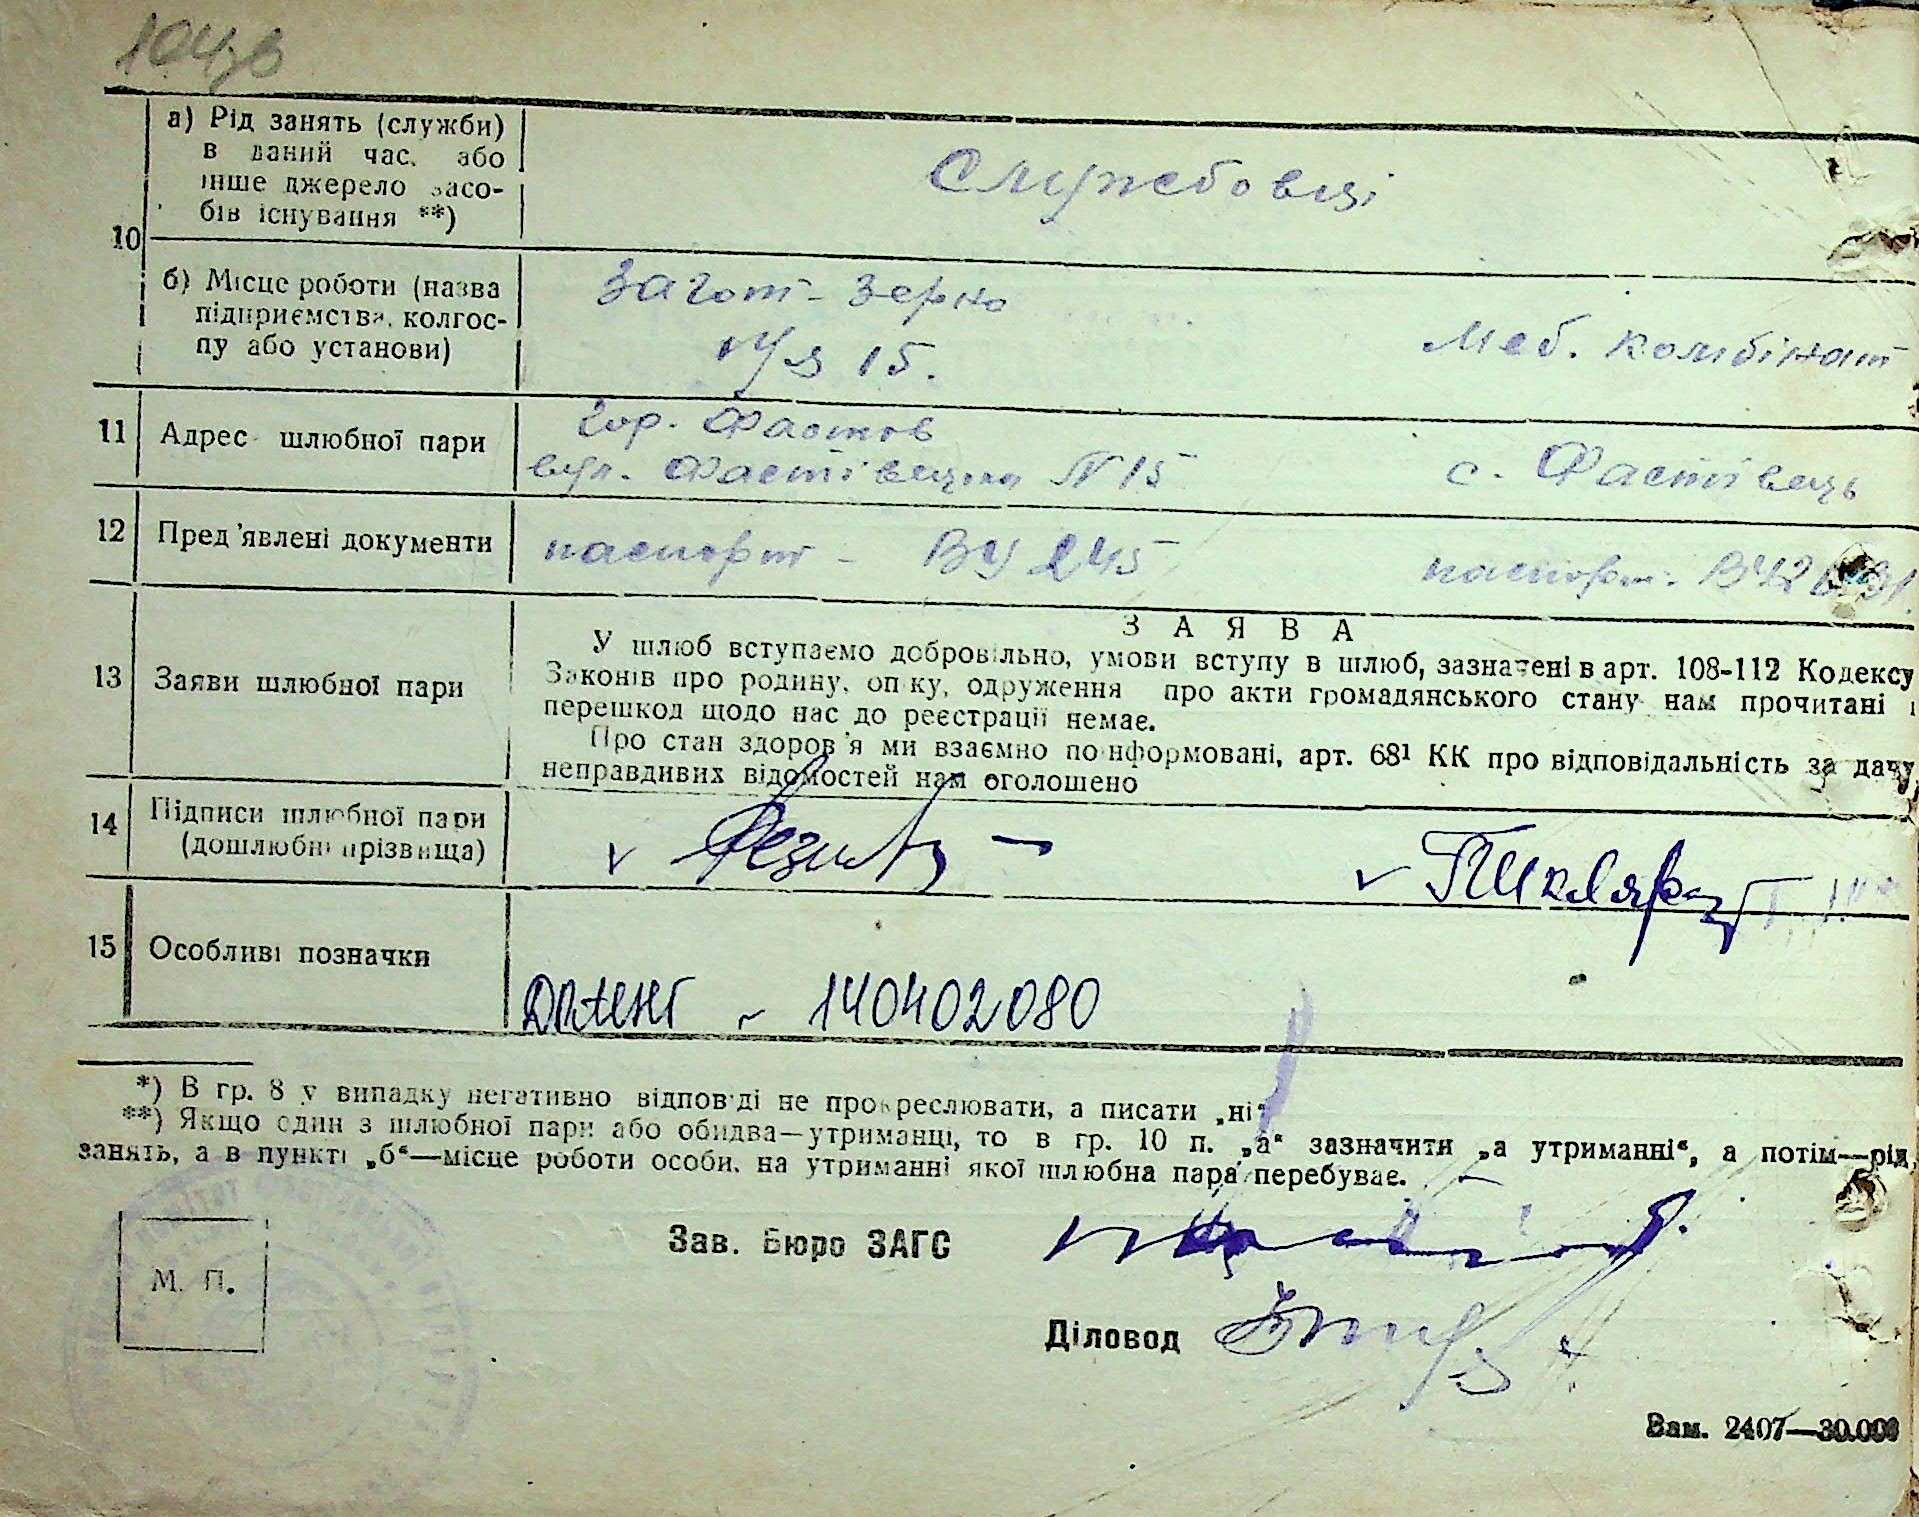 104зв
а) Рід занять (служби)
в даний час, або
інше джерело засо-
бів існування **)
Службовці
10
б) Місце роботи (назва
підприємства, колгос-
пу або установи)
Загот-зерно
15.
Меб. комбінат
11 Адрес шлюбної пари
гор. Фастов
вул. Фастівецька № 15
с. Фастівець
12 Пред'явлені документи
паспорт - ВУ 245
паспорт.
13 Заяви шлюбної пари
ЗАЯВА
У шлюб вступаємо добровільно, умови вступу в шлюб, зазначені в арт. 108-112 Кодексу
Законів про родину, опіку, одруження про акти громадянського стану нам прочитані і
перешкод щодо нас до реєстрації немає.
Про стан здоров'я ми взаємно поінформовані, арт. 68¹ КК про відповідальність за дачу
неправдивих відомостей нам оголошено
14 Підписи шлюбної пари
(дошлюбні прізвища)
15 Особливі позначки
140402080
*) В гр. 8 у випадку негативно відповіді не прокреслювати, а писати „ні“
**) Якщо один з шлюбної пари або обидва—утриманці, то в гр. 10 п. „а“ зазначити „а утриманні“, а потім—рід
занять, а в пункті „б“—місце роботи особи, на утриманні якої шлюбна пара перебуває.
Зав. Бюро ЗАГС
М. П.
Діловод
Зам. 2407—30.000